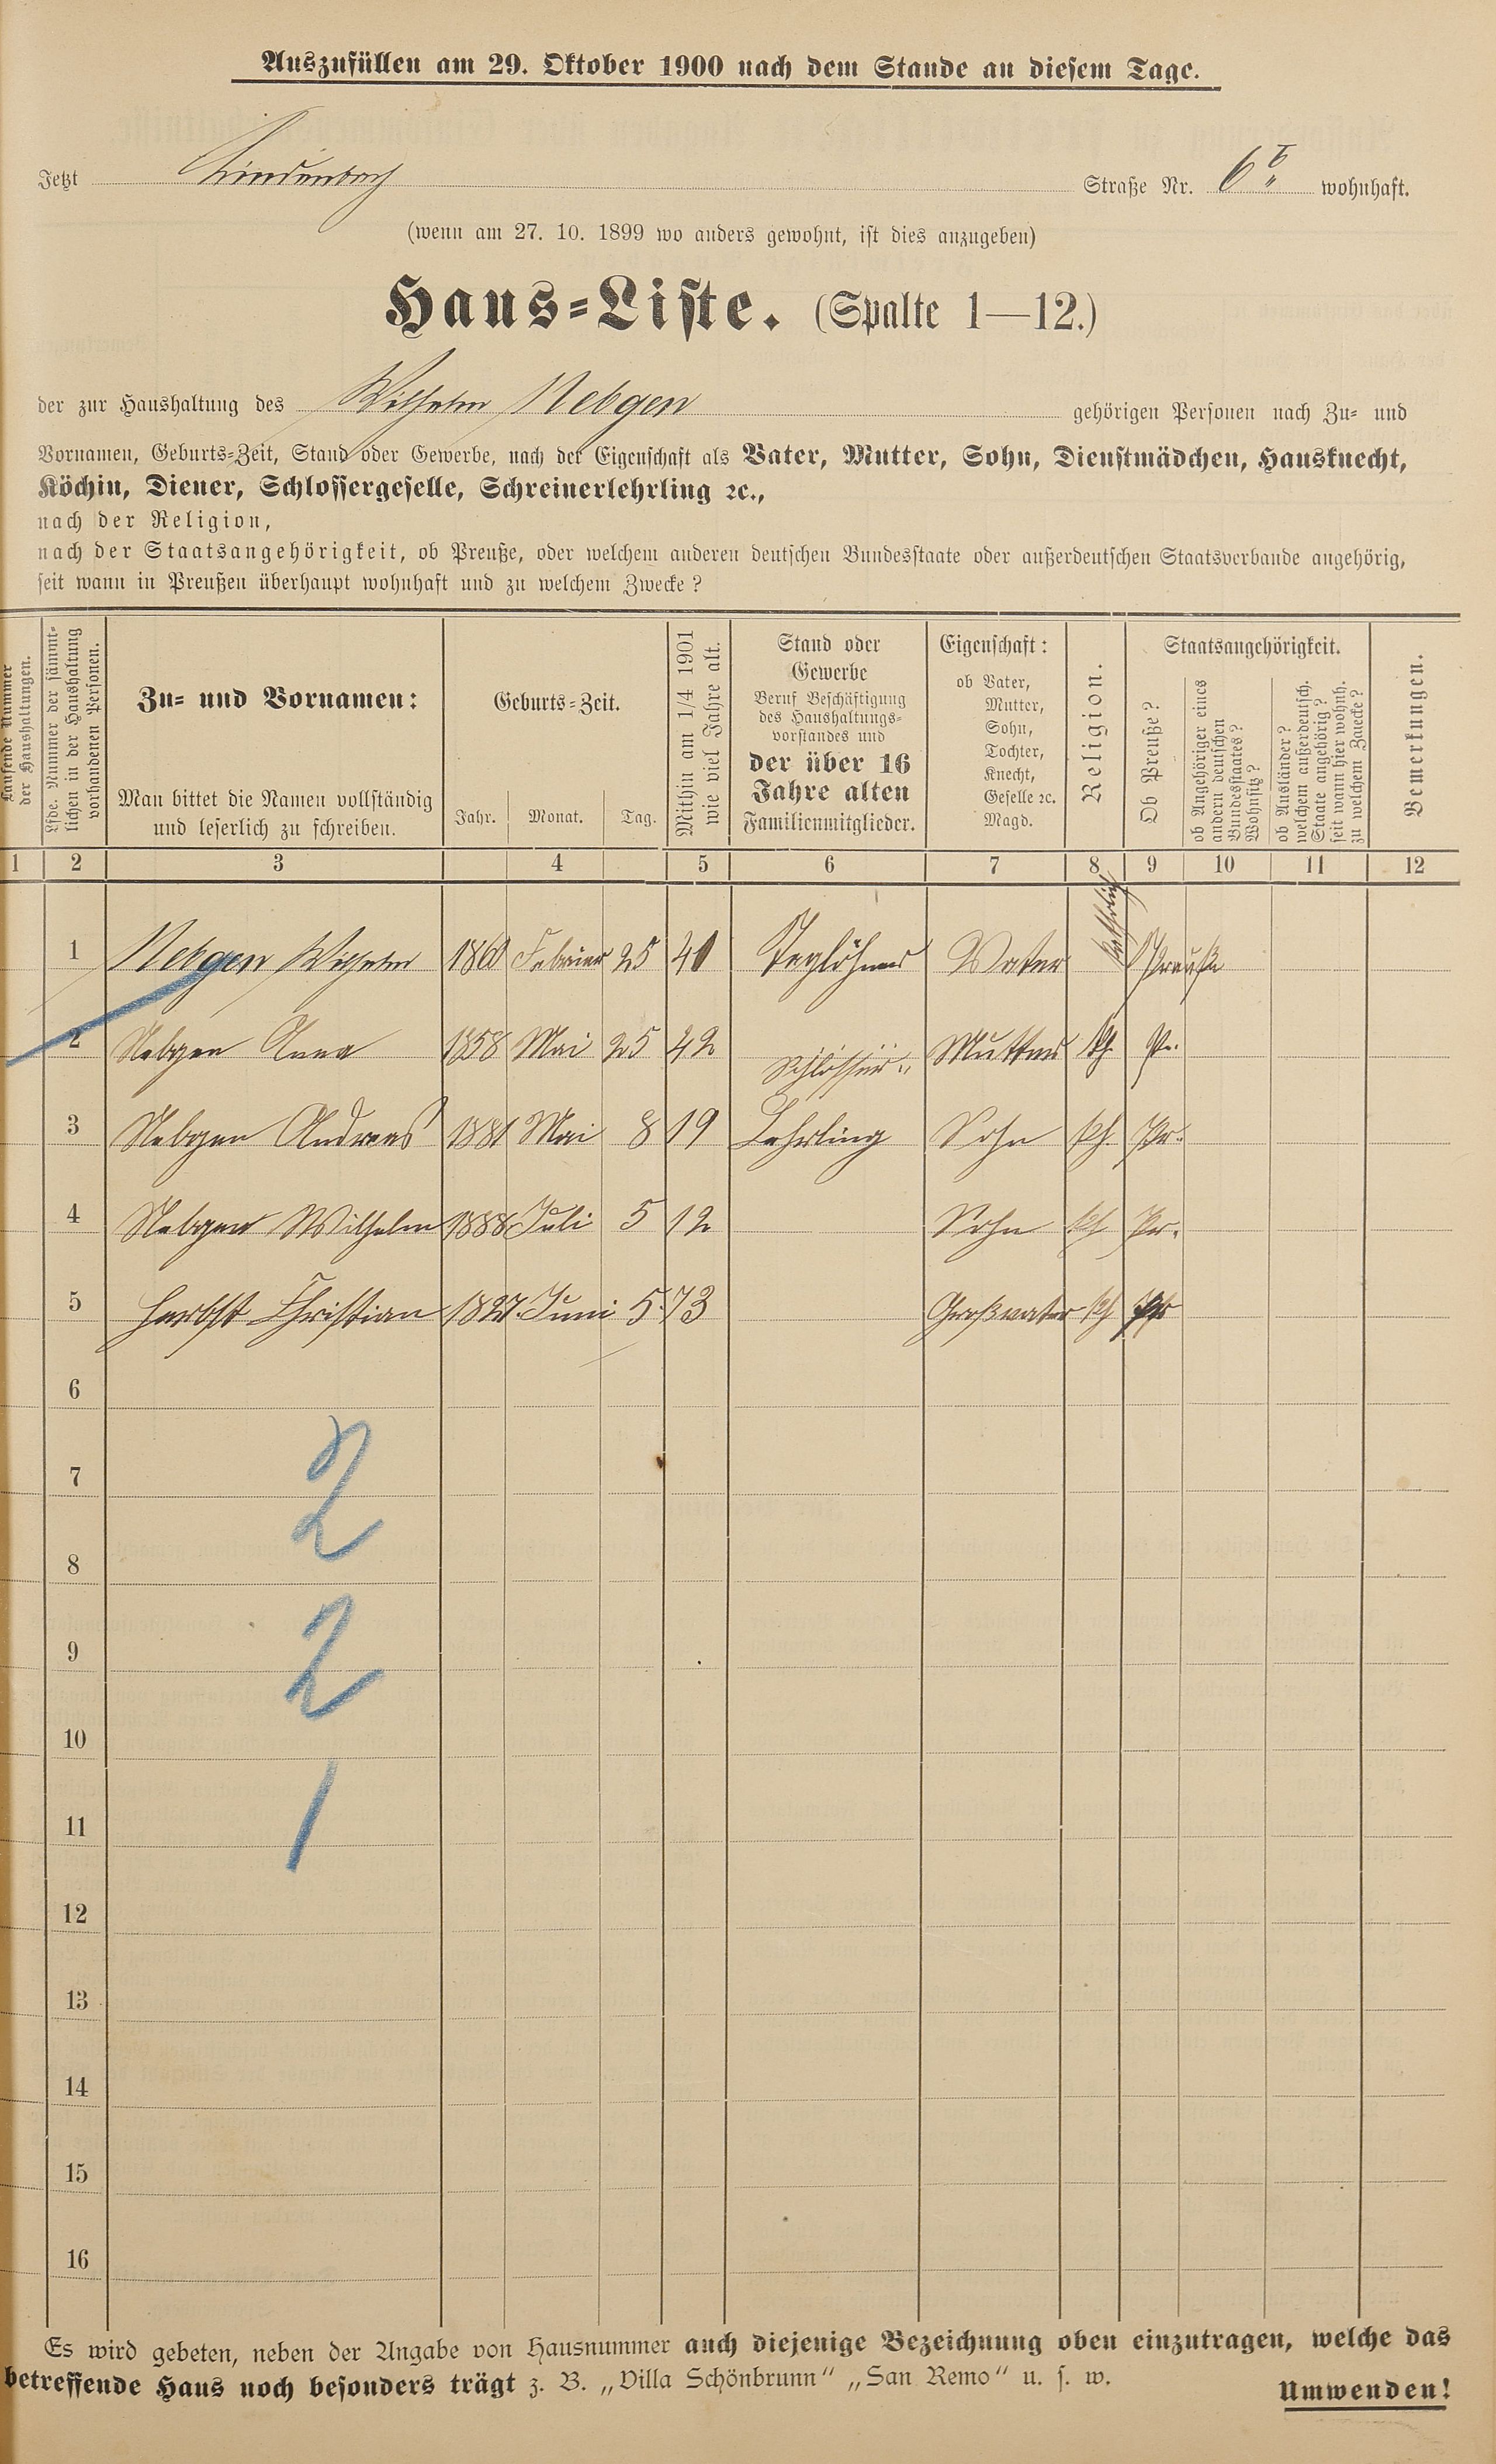 Auszufüllen am 29. Oktober 1900 nach dem Stande an diesem Tage.
Jetzt Lindenbach Straße Nr. 6 b wohnhaft.
(wenn am 27. 10. 1899 wo anders gewohnt, ist dies anzugeben)
Haus-Liste. (Spalte 1—12.)
der zur Haushaltung des Wilhelm Nebgen gehörigen Personen nach Zu- und
Vornamen, Geburts-Zeit, Stand oder Gewerbe, nach der Eigenschaft als Vater, Mutter, Sohn, Dienstmädchen, Hausknecht,
Köchin, Diener, Schlossergeselle, Schreinerlehrling ꝛc.,
nach der Religion,
nach der Staatsangehörigkeit, ob Preuße, oder welchem anderen deutschen Bundesstaate oder außerdeutschen Staatsverbande angehörig,
seit wann in Preußen überhaupt wohnhaft und zu welchem Zwecke?
Laufende Nummer
der Haushaltungen.
Lfde. Nummer der sämmt-
lichen in der Haushaltung
vorhandenen Personen.
Zu- und Vornamen:
Man bittet die Namen vollständig
und leserlich zu schreiben.
Geburts-Zeit.
Jahr. Monat. Tag.
Mithin am 1/4 1901
wie viel Jahre alt.
Stand oder
Gewerbe
Beruf Beschäftigung
des Haushaltungs-
vorstandes und
der über 16
Jahre alten
Familienmitglieder.
Eigenschaft:
ob Vater,
Mutter,
Sohn,
Tochter,
Knecht,
Geselle ꝛc.
Magd.
Religion.
Staatsangehörigkeit.
Ob Preuße?
ob Angehöriger eines
andern deutschen
Bundesstaates?
Wohnsitz?
ob Ausländer?
welchem außerdeutsch.
Staate angehörig?
seit wann hier wohnh.
zu welchem Zwecke?
Bemerkungen.
1 2 3 4 5 6 7 8 9 10 11 12
1 Nebgen Wilhelm 1860 Februar 25 40 Taglöhner Vater katholisch Preuße
2 Nebgen Anna 1858 Mai 25 42 Mutter kh. Pr.
Schlosser-
3 Nebgen Andreas 1881 Mai 8 19 Lehrling Sohn kh. Pr.
4 Nebgen Wilhelm 1888 Juli 5 12 Sohn kh Pr.
5 Herbst Christian 1827 Juni 5 73 Großvater kh Pr
6
7
2
8
9
2
10
11
1
12
13
14
15
16
Es wird gebeten, neben der Angabe von Hausnummer auch diejenige Bezeichnung oben einzutragen, welche das
betreffende Haus noch besonders trägt z. B. „Villa Schönbrunn“ „San Remo“ u. s. w.
Umwenden!